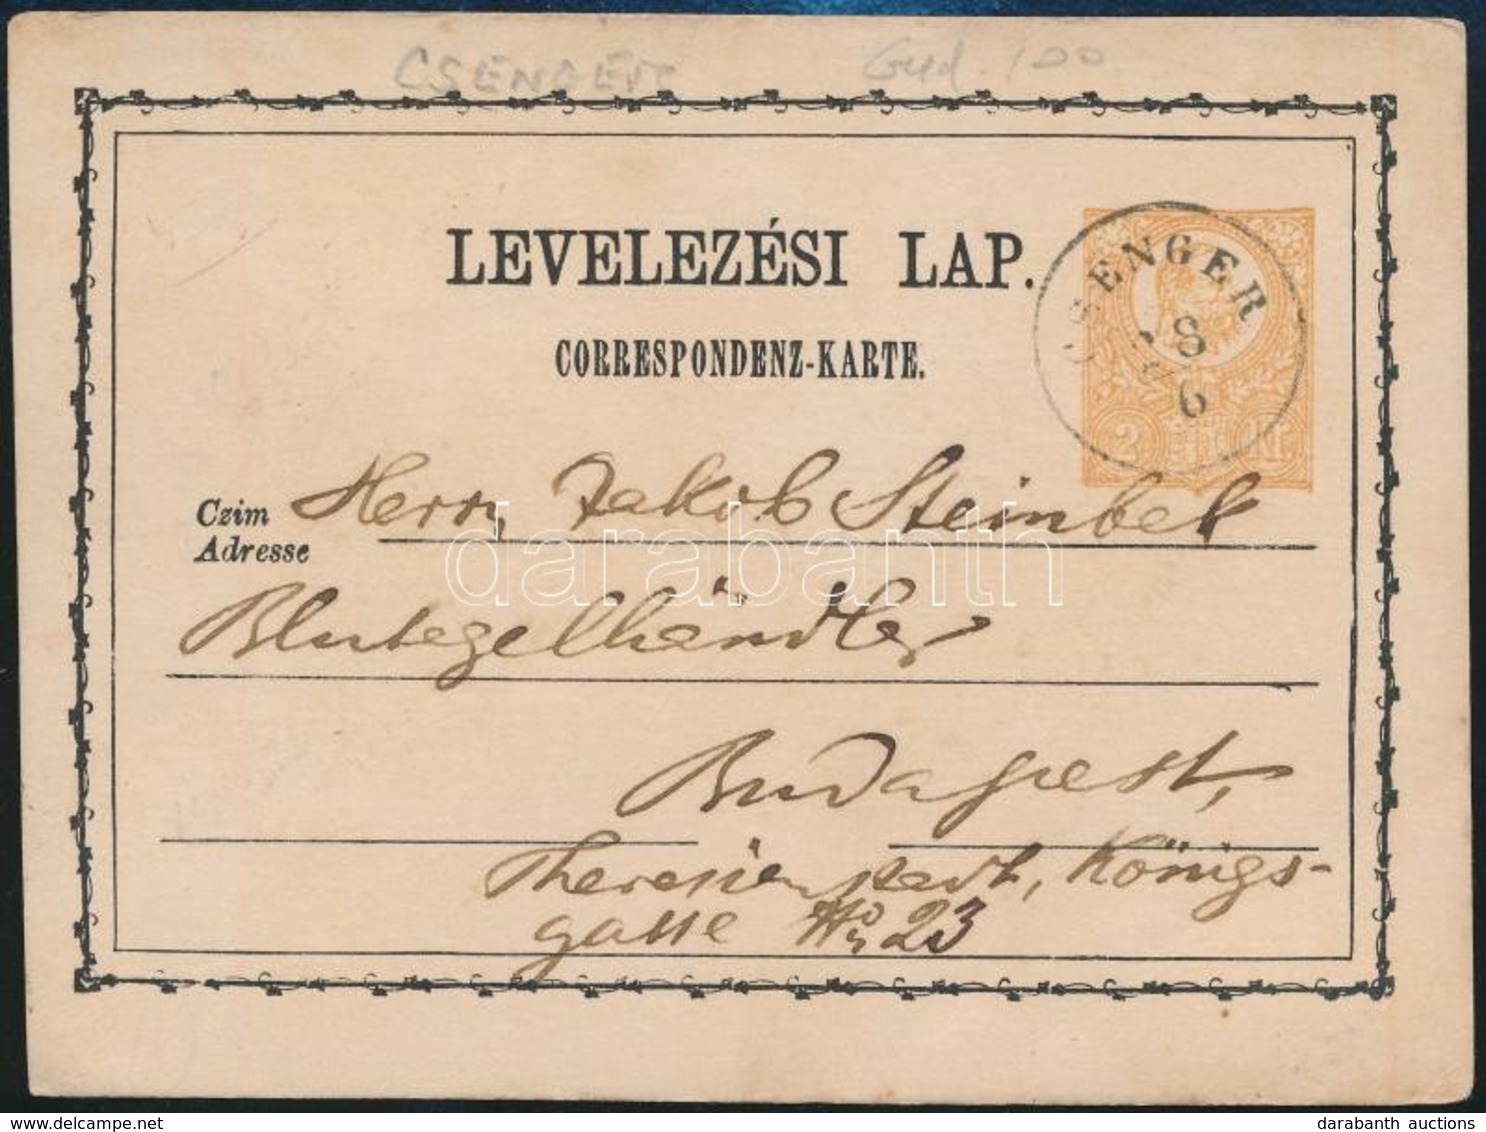 CSENGER Gud. 100
LEVELEZÉSI LAP.
CORRESPONDENZ-KARTE.
CSENGER
8
6
2 Kr.
Czim
Adresse
Herrn, Jakob Steinbek
darabanth
Blutegelhändler
Budapest,
Theresienstadt, Königs-
gasse No 23
darabanth auctions